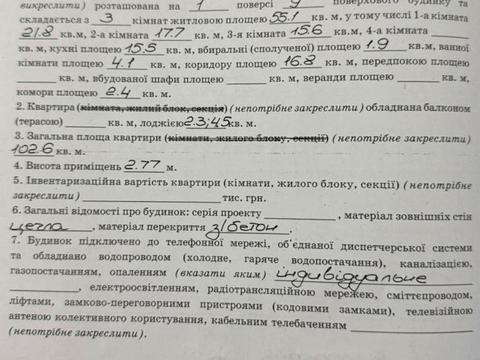 викреслити) розташована на 1 поверсі 9 поверхового будинку та
складається з 3 кімнат житловою площею 55.1 кв. м, у тому числі 1-а кімната
21.8 кв.м, 2-а кімната 17.7 кв. м, 3-я кімната 15.6 кв.м, 4-а кімната
кв. м, кухні площею 15.5 кв. м, вбиральні (сполученої) площею 1.9 кв.м, ванної
кімнати площею 4.1 кв. м, коридору площею 16.8 кв. м, передпокою площею
кв. м, вбудованої шафи площею кв. м, веранди площею кв. м,
комори площею 2.4 кв. м.
2. Квартира (кімната, жилий блок, секція) (непотрібне закреслити) обладнана балконом
(терасою) кв. м, лоджією 2.3; 4.5 кв. м.
3. Загальна площа квартири (кімнати, жилого блоку, секції) (непотрібне закреслити)
102.6 кв. м.
4. Висота приміщень 2.77 м.
5. Інвентаризаційна вартість квартири (кімнати, жилого блоку, секції) (непотрібне
закреслити) тис. грн.
6. Загальні відомості про будинок: серія проекту , матеріал зовнішніх стін
цегла , матеріал перекриття з/бетон .
7. Будинок підключено до телефонної мережі, об'єднаної диспетчерської системи
та обладнано водопроводом (холодне, гаряче водопостачання), каналізацією,
газопостачанням, опаленням (вказати яким) індивідуальне
, електроосвітленням, радіотрансляційною мережею, сміттєпроводом,
ліфтами, замково-переговорними пристроями (кодовими замками), телевізійною
антеною колективного користування, кабельним телебаченням
(непотрібне закреслити).